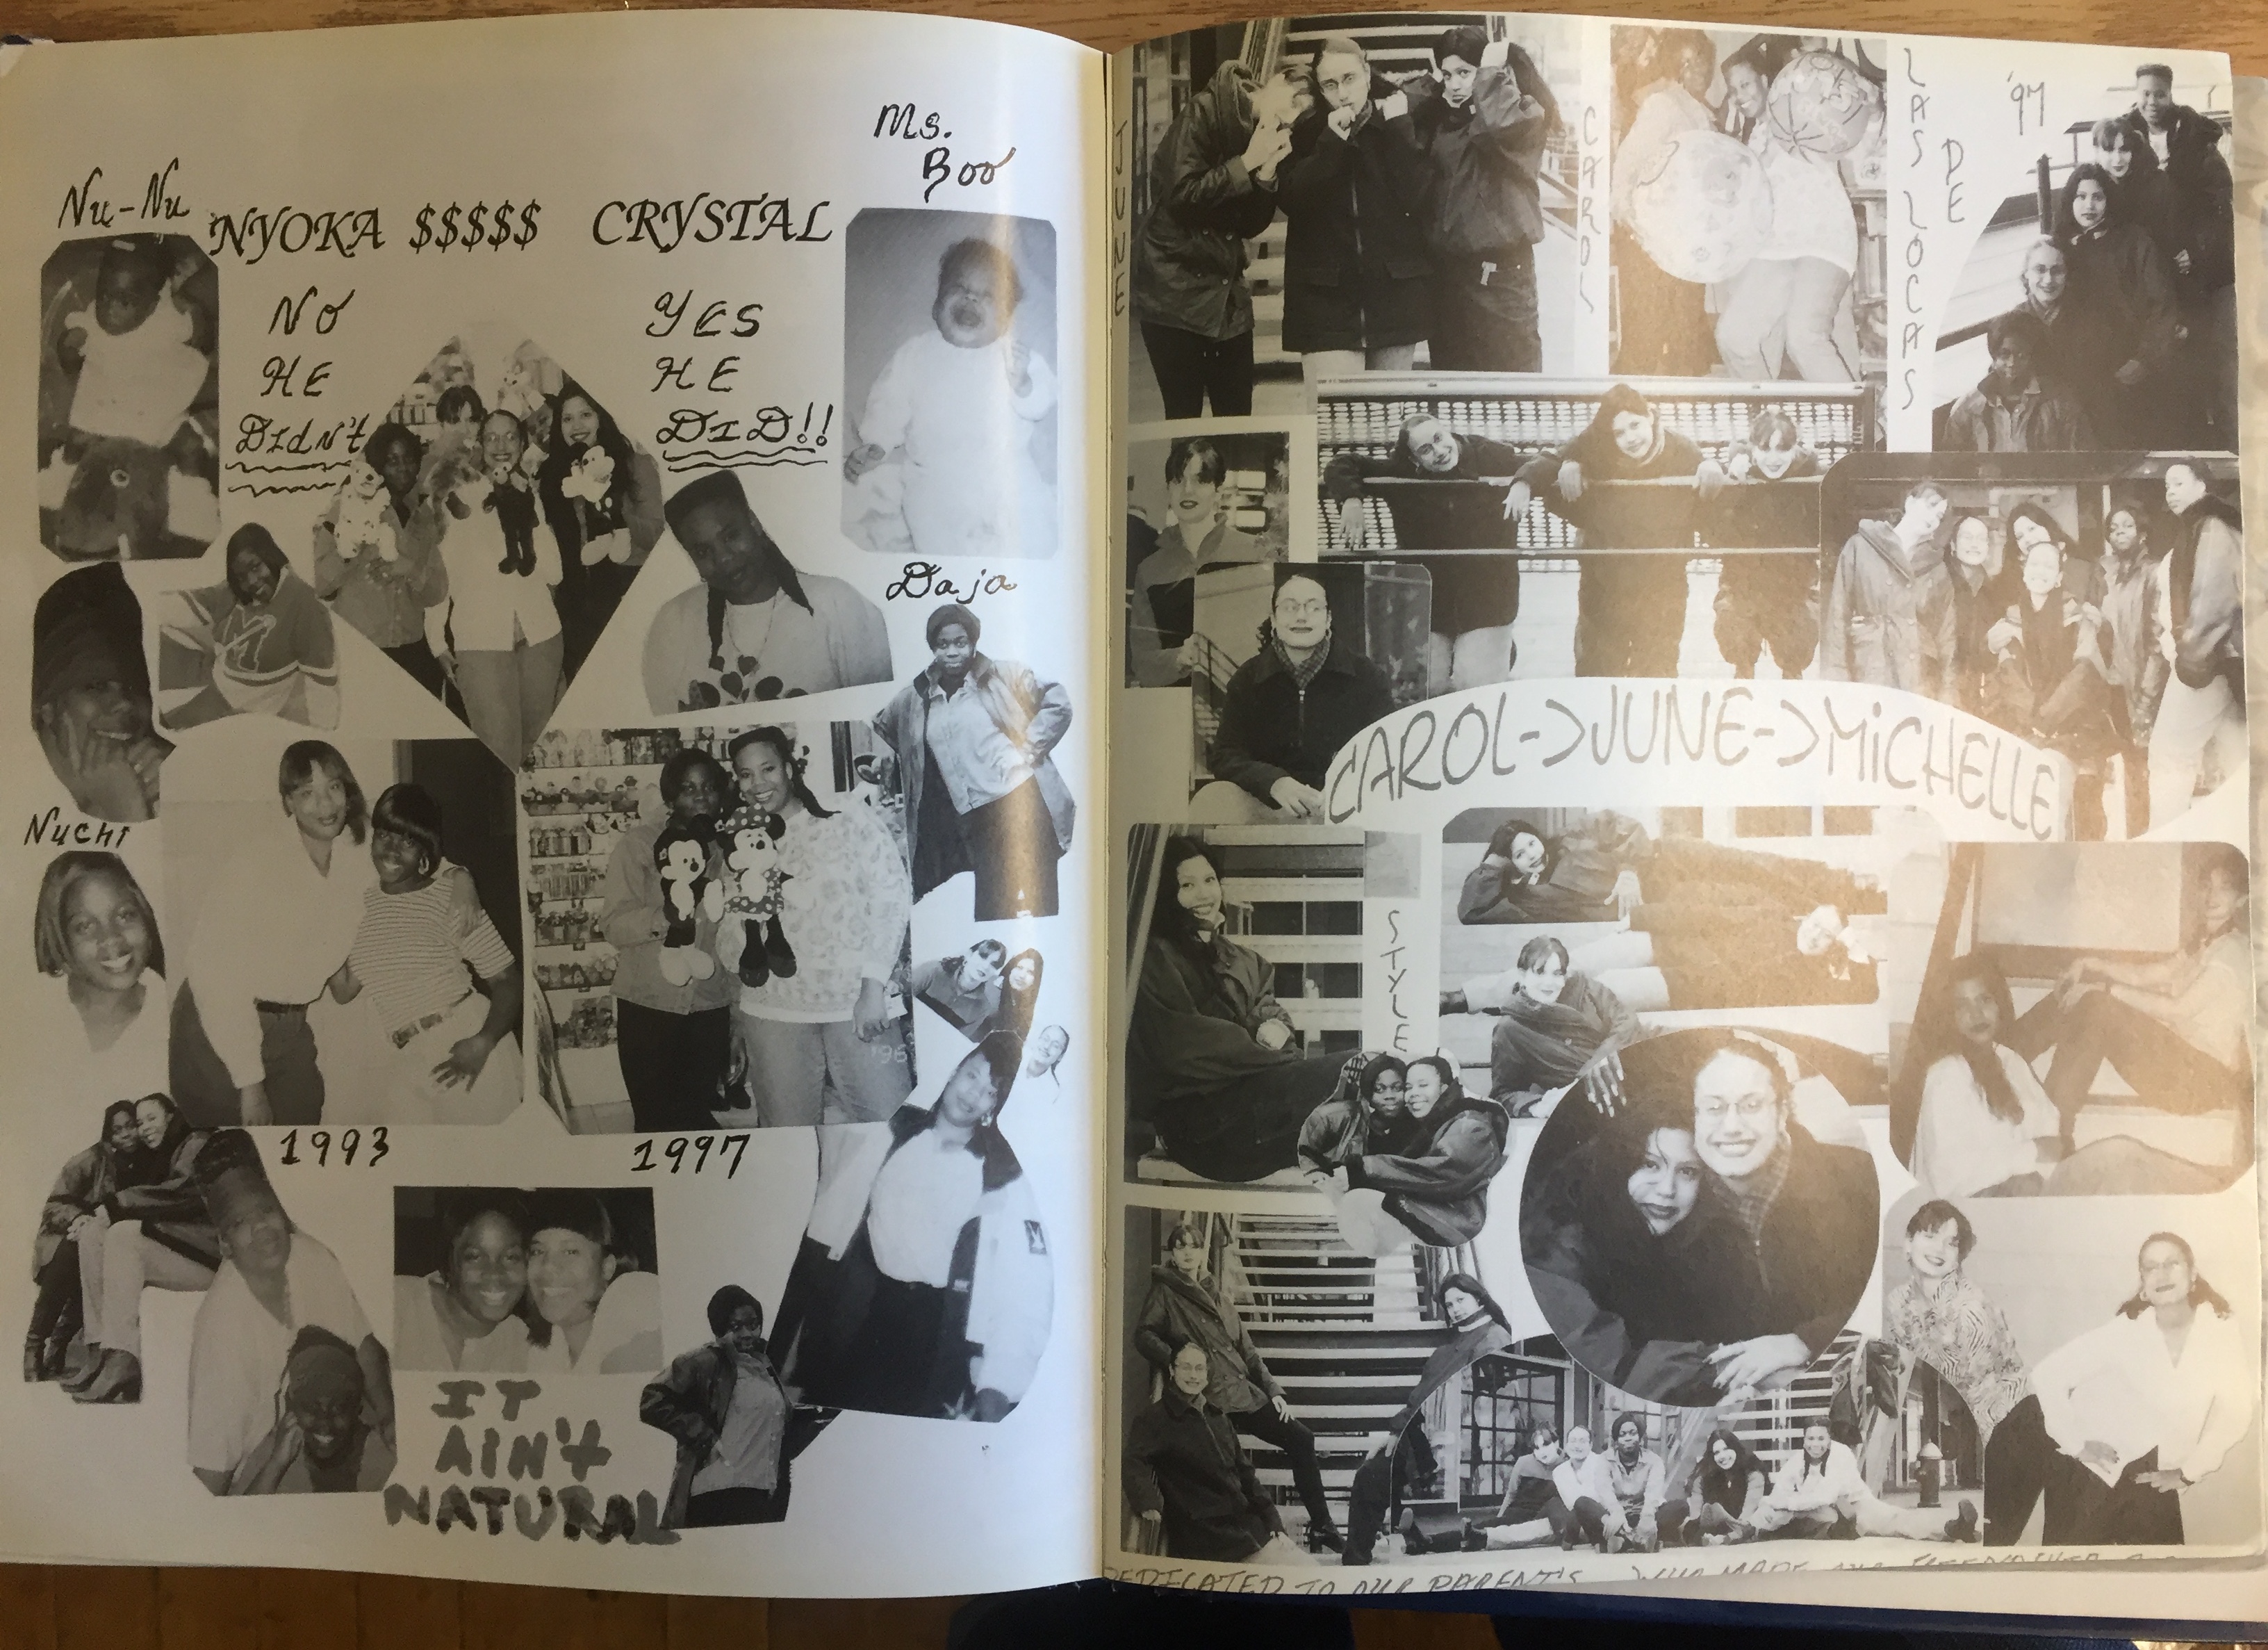 Ms.
Boo
Nu-Nu
NYOKA $$$$$ CRYSTAL
NO
HE
DIdN't
YES
HE
DID!!
Daja
Nuchi
'96
1993
1997
IT
AIN't
NATURAL
JUNE
CAROL
LAS LOCAS
DE
'97
CAROL->JUNE->MiCHELLE
STYLE
DEDICATED TO OUR PARENT'S WHO MADE